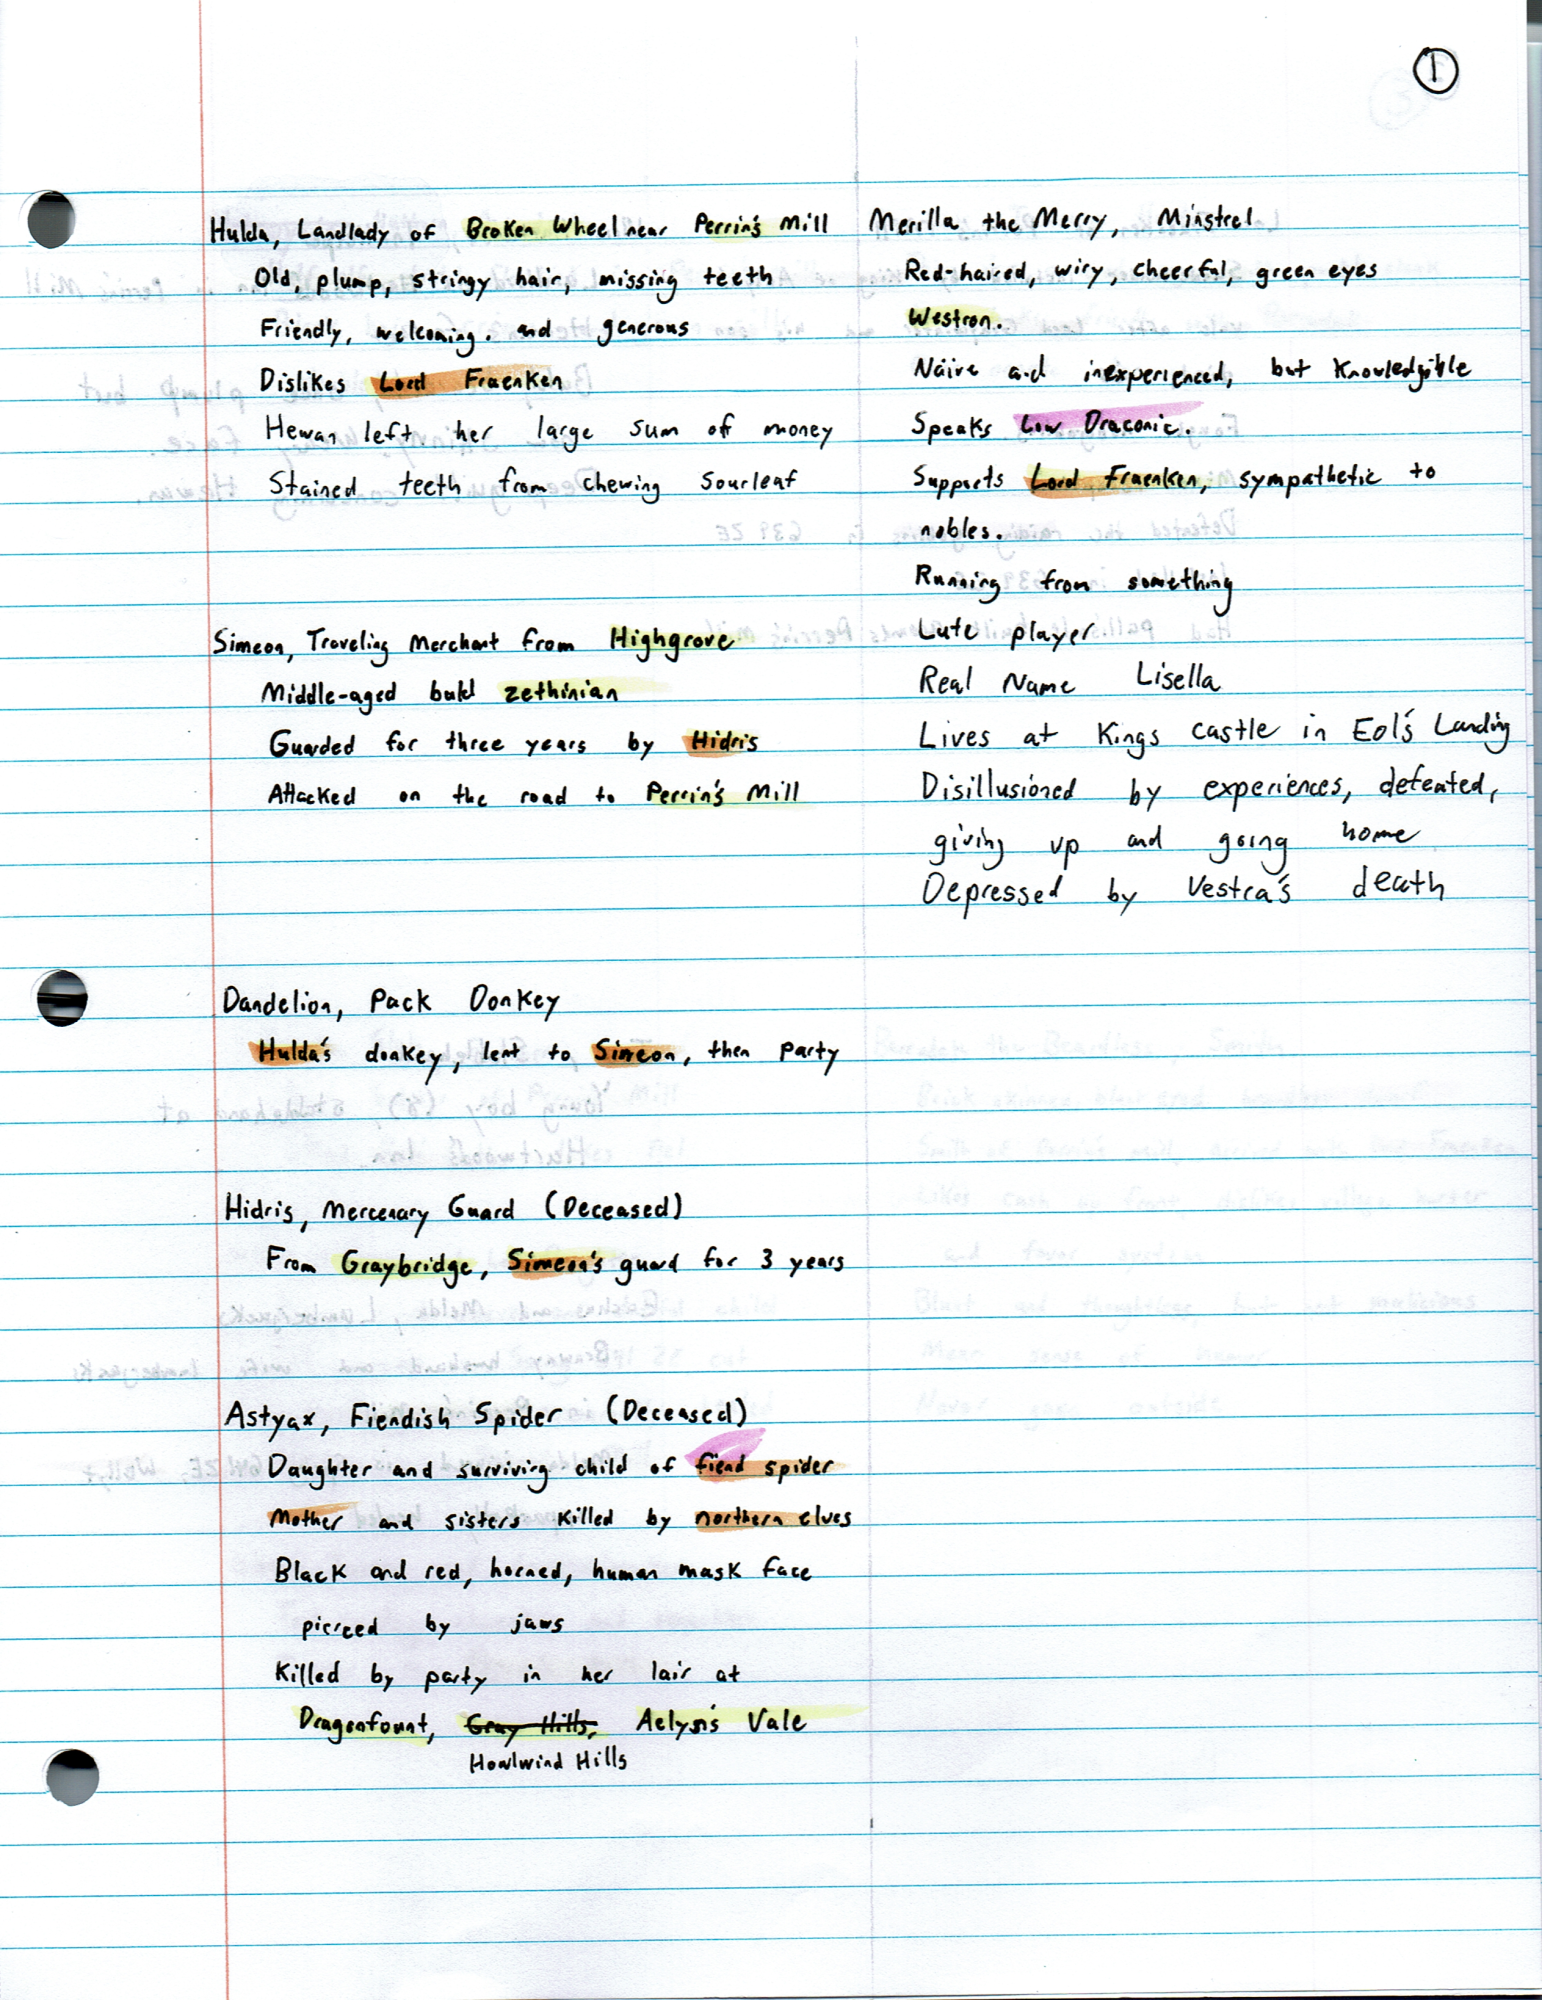 1
Hulda, Landlady of Broken Wheel near Perrin's Mill
Old, plump, stringy hair, missing teeth
Friendly, welcoming. and generous
Dislikes Lord Fraenken
Hewan left her large sum of money
Stained teeth from chewing sourleaf
Simeon, Traveling Merchant from Highgrove
Middle-aged bald zethinian
Guarded for three years by Hidris
Attacked on the road to Perrin's Mill
Dandelion, Pack Donkey
Hulda's donkey, lent to Simeon, then party
Hidris, Mercenary Guard (Deceased)
From Graybridge, Simeon's guard for 3 years
Astyax, Fiendish Spider (Deceased)
Daughter and surviving child of fiend spider
Mother and sisters killed by northern elves
Black and red, horned, human mask face
pierced by jaws
Killed by party in her lair at
Dragonfount, Gray Hills, Aelysis Vale
Howlwind Hills
Merilla the Merry, Minstrel
Red-haired, wiry, cheerful, green eyes
Westron.
Naive and inexperienced, but knowledgible
Speaks Low Draconic.
Supports Lord Fraenken, sympathetic to
nobles.
Running from something
Lute player
Real Name Lisella
Lives at Kings Castle in Eol's Landing
Disillusioned by experiences, defeated,
giving up and going home
Depressed by Vestra's death